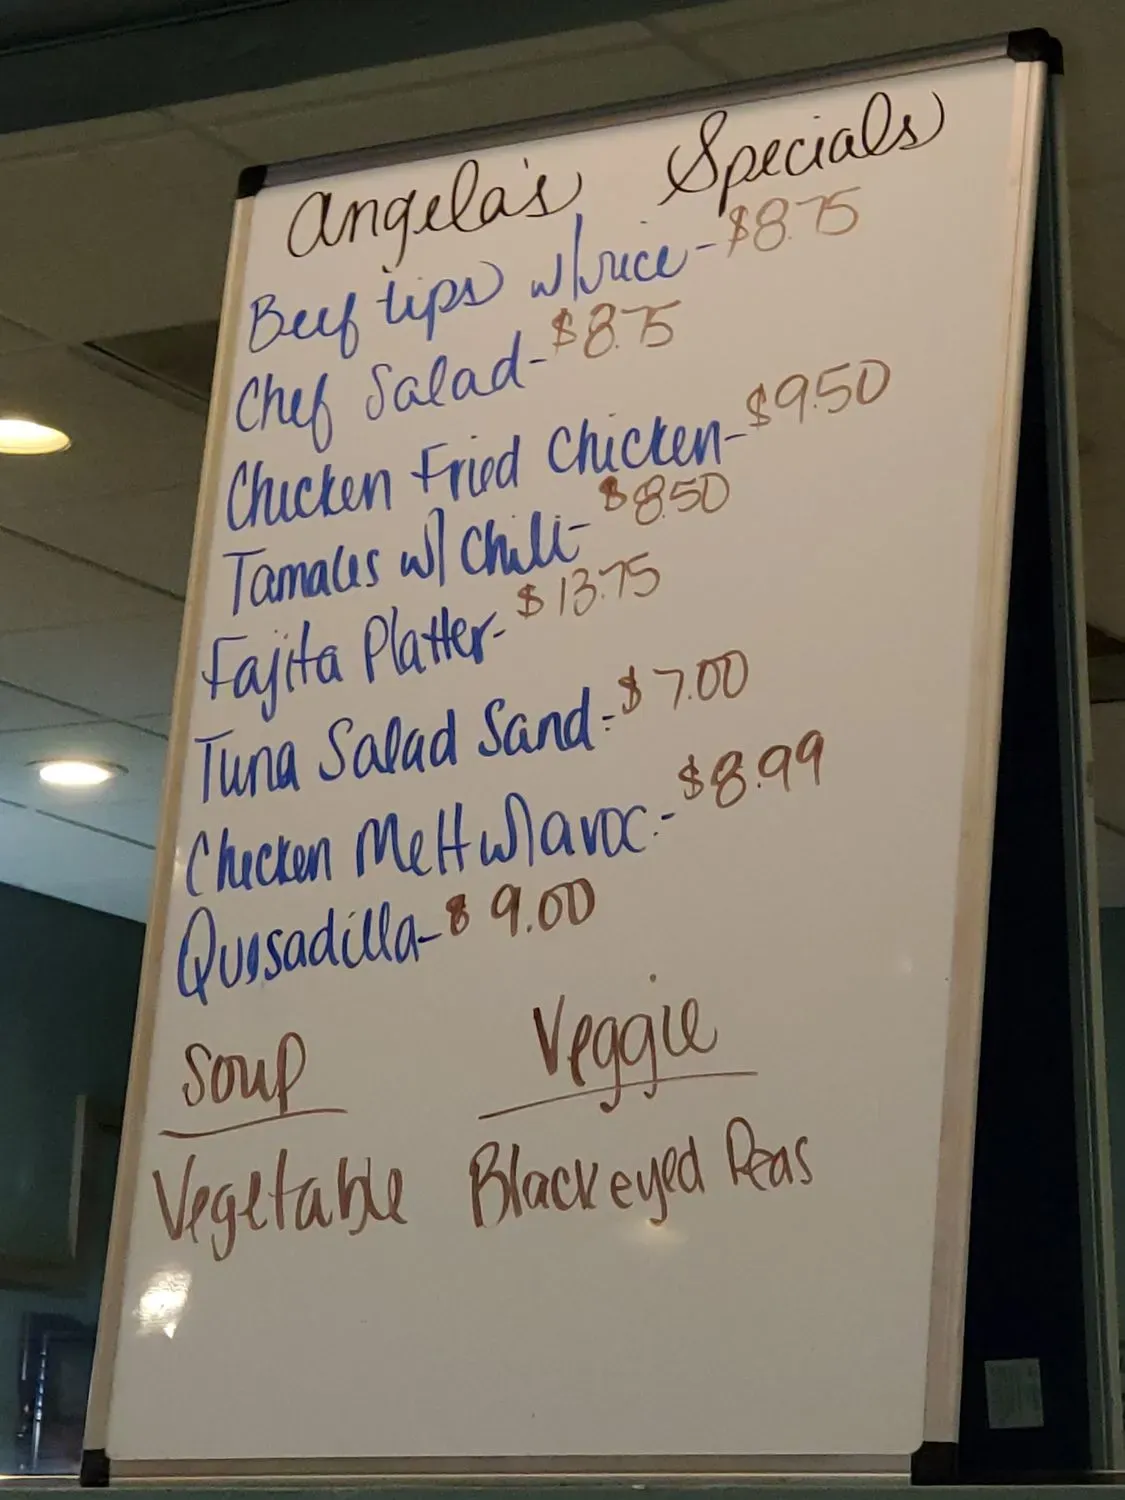 Angela's Specials
Beef tips w/rice - $8.75
Chef Salad - $8.75
Chicken Fried Chicken - $9.50
Tamales w/ Chili - $8.50
Fajita Platter - $13.75
Tuna Salad Sand. - $7.00
Chicken Melt w/avoc. - $8.99
Quesadilla - $9.00
Soup Veggie
Vegetable Blackeyed Peas